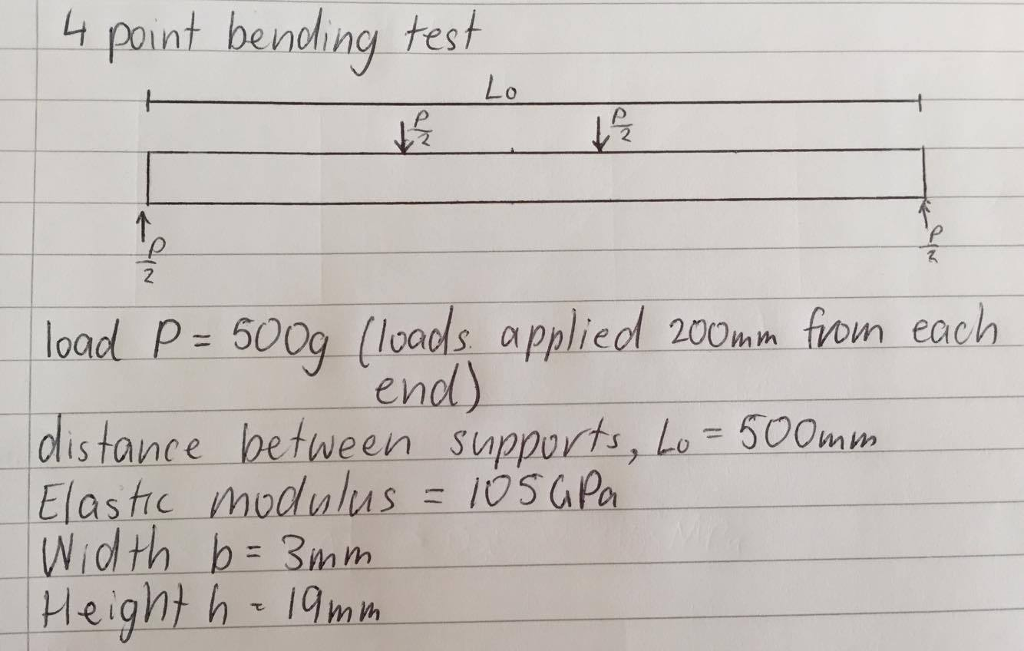 4 point bending test
L₀
P/2 P/2
P/2 P/2
load P = 500g (loads applied 200mm from each
end)
distance between supports, L₀ = 500mm
Elastic modulus = 105 GPa
Width b = 3mm
Height h = 19mm